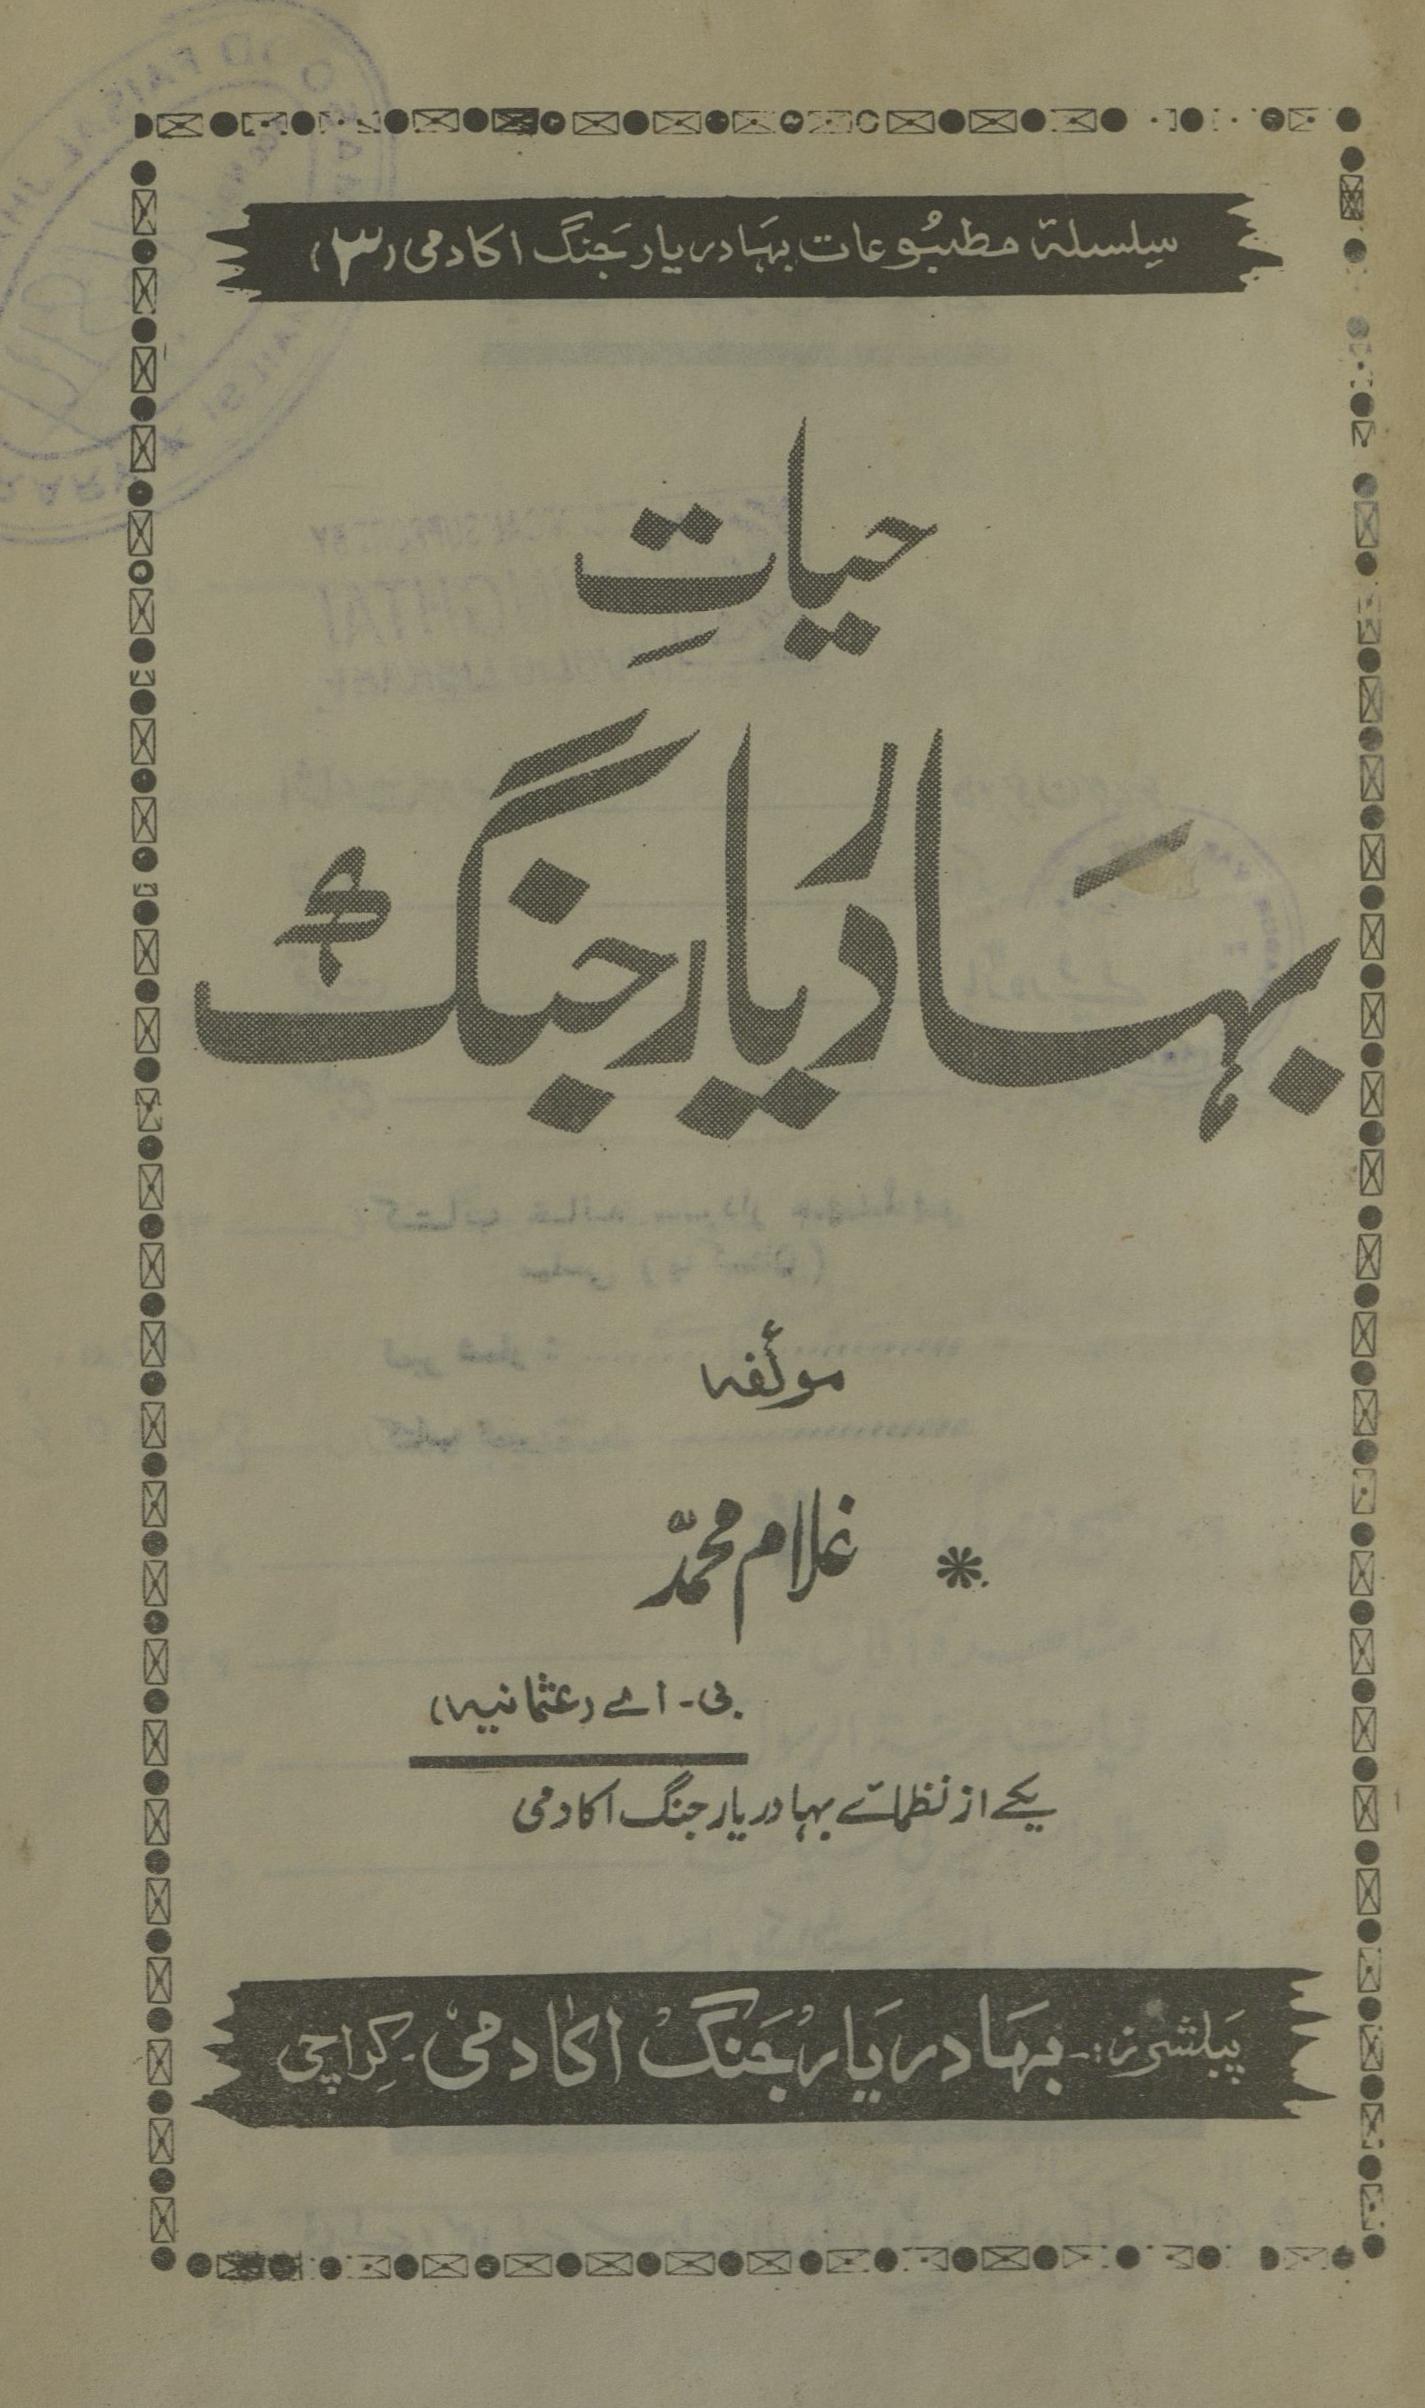 سِلسلۂ مطبُوعات بہَادر یار جَنگ اکادمی (۳)
حیاتِ
بہَادر یار جنگ
مولّفہ
غلام محمدّ
بی - اے (عثمانیہ)
یکے از نظمائے بہادر یار جنگ اکادمی
پَبلشرز:- بہَادر یَار جَنگ اکادمی - کراچی